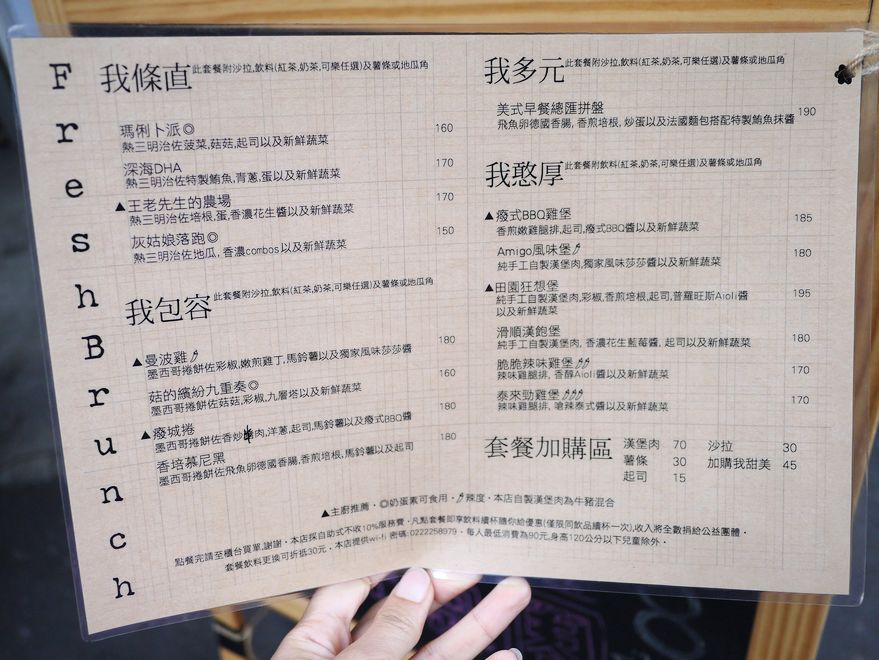 Fresh Brunch
我條直 此套餐附沙拉,飲料(紅茶,奶茶,可樂任選)及薯條或地瓜角
瑪俐卜派◎ 160
熱三明治佐菠菜,菇菇,起司以及新鮮蔬菜
深海DHA 170
熱三明治佐特製鮪魚,青蔥,蛋以及新鮮蔬菜
▲王老先生的農場 170
熱三明治佐培根,蛋,香濃花生醬以及新鮮蔬菜
灰姑娘落跑◎ 150
熱三明治佐地瓜,香濃combos以及新鮮蔬菜
我包容 此套餐附沙拉,飲料(紅茶,奶茶,可樂任選)及薯條或地瓜角
▲曼波雞 180
墨西哥捲餅佐彩椒,嫩煎雞丁,馬鈴薯以及獨家風味莎莎醬
菇的繽紛九重奏◎ 160
墨西哥捲餅佐菇菇,彩椒,九層塔以及新鮮蔬菜
▲廢城捲 180
墨西哥捲餅佐香炒肉,洋蔥,起司,馬鈴薯以及廢式BBQ醬
香培慕尼黑 180
墨西哥捲餅佐飛魚卵德國香腸,香煎培根,馬鈴薯以及起司
我多元 此套餐附沙拉,飲料(紅茶,奶茶,可樂任選)及薯條或地瓜角
美式早餐總匯拼盤 190
飛魚卵德國香腸,香煎培根,炒蛋以及法國麵包搭配特製鮪魚抹醬
我憨厚 此套餐附飲料(紅茶,奶茶,可樂任選)及薯條或地瓜角
▲廢式BBQ雞堡 185
香煎嫩雞腿排,起司,廢式BBQ醬以及新鮮蔬菜
Amigo風味堡 180
純手工自製漢堡肉,獨家風味莎莎醬以及新鮮蔬菜
▲田園狂想堡 195
純手工自製漢堡肉,彩椒,香煎培根,起司,普羅旺斯Aioli醬
以及新鮮蔬菜
滑順漢飽堡 180
純手工自製漢堡肉,香濃花生藍莓醬,起司以及新鮮蔬菜
脆脆辣味雞堡 170
辣味雞腿排,香醇Aioli醬以及新鮮蔬菜
泰來勁雞堡 170
辣味雞腿排,嗆辣泰式醬以及新鮮蔬菜
套餐加購區
漢堡肉 70 沙拉 30
薯條 30 加購我甜美 45
起司 15
▲主廚推薦・◎奶蛋素可食用・辣度・本店自製漢堡肉為牛豬混合
點餐完請至櫃台買單,謝謝・本店採自助式不收10%服務費・凡點套餐即享飲料續杯隨你給優惠(僅限同飲品續杯一次),收入將全數捐給公益團體・
套餐飲料更換可折抵30元・本店提供wi-fi 密碼:0222258979・每人最低消費為90元,身高120公分以下兒童除外・